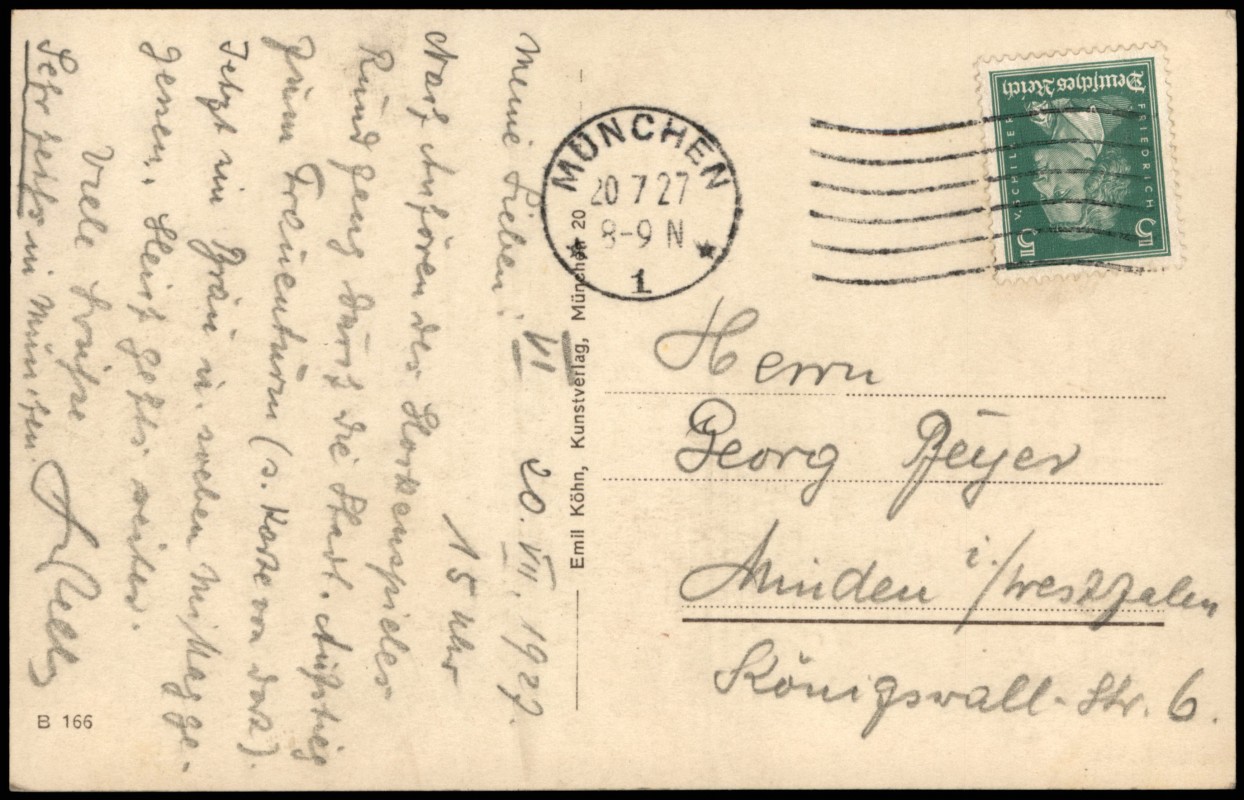 Meine Lieben! VI 20. VII. 1927.
15 Uhr
Nach Anhören des Glockenspieles
Rundgang durch die Stadt. Aufstieg
zum Frauenturm (s. Karte von dort).
Jetzt im Bräu u. soeben Mittag ge-
gessen. Gleich geht's weiter.
Viele Grüsse
Sehr heiß in München.
Emil Köhn, Kunstverlag, München 20
B 166
MÜNCHEN
20 7 27
8-9 N
1
Deutsches Reich
FRIEDRICH
V. SCHILLER
5 5
Herrn
Georg Beyer
Minden i./Westfalen
Königswall-Str. 6.